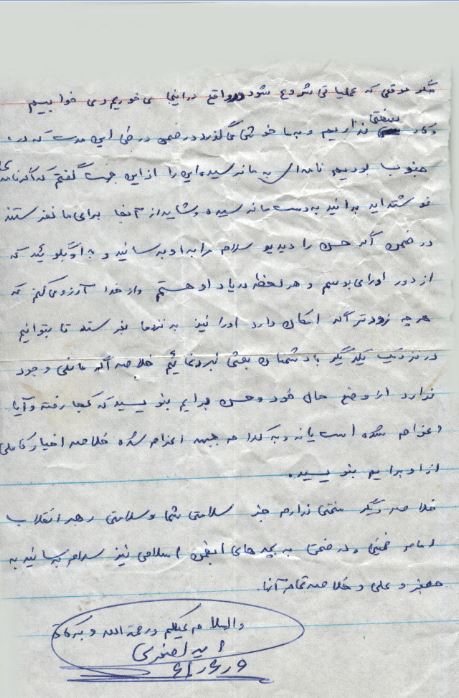 مگر موقعی که عملیاتی شروع شود در واقع در اینجا می خوریم و می خوابیم
و کار سختی نداریم و به ما خوش می گذرد در ضمن در طی این مدت که در
جنوب بودیم نامه ای به ما نرسیده این را از این جهت گفتم که اگر نامه ای
نوشته اید بدانید به دست ما نرسیده و شاید از آنجا برای ما نفرستند
در ضمن اگر حسن را دیدید سلام مرا به او برسانید و به او بگوئید که
از دور او را می بوسم و هر لحظه در یاد او هستم و از خدا آرزو می کنم که
هر چه زودتر اگر امکان دارد او را نیز به تنهما بفرستد تا بتوانیم
در نزدیک یکدیگر با دشمنان بعثی نبرد نمائیم خلاصه اگر مانعی وجود
ندارد از وضع حال خود و حسن برایم بنویسید که کجا رفته و آیا
اعزام شده است یا نه و به کدام جبهه اعزام شده خلاصه اخبار کاملی
از او برایم بنویسید.
خلاصه دیگر عرضی ندارم جز سلامتی شما و سلامتی رهبر انقلاب
امام خمینی و در ضمن به بچه های انجمن اسلامی نیز سلام برسانید به
جعفر و علی و خلاصه تمام آنها.
والسلام علیکم و رحمة الله و برکاته
امیر اصغری